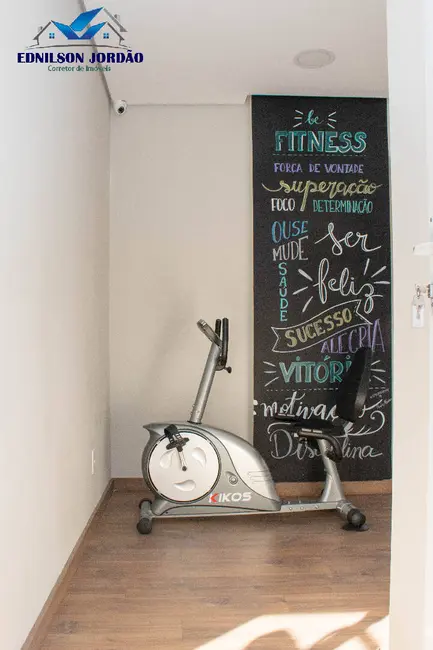 EDNILSON JORDÃO
Corretor de Imóveis
be
FITNESS
FORÇA DE VONTADE
superação
FOCO DETERMINAÇÃO
OUSE
MUDE
ser
feliz
SAUDE
SUCESSO
ALEGRIA
VITÓRI
motivaç
Disciplina
KIKOS